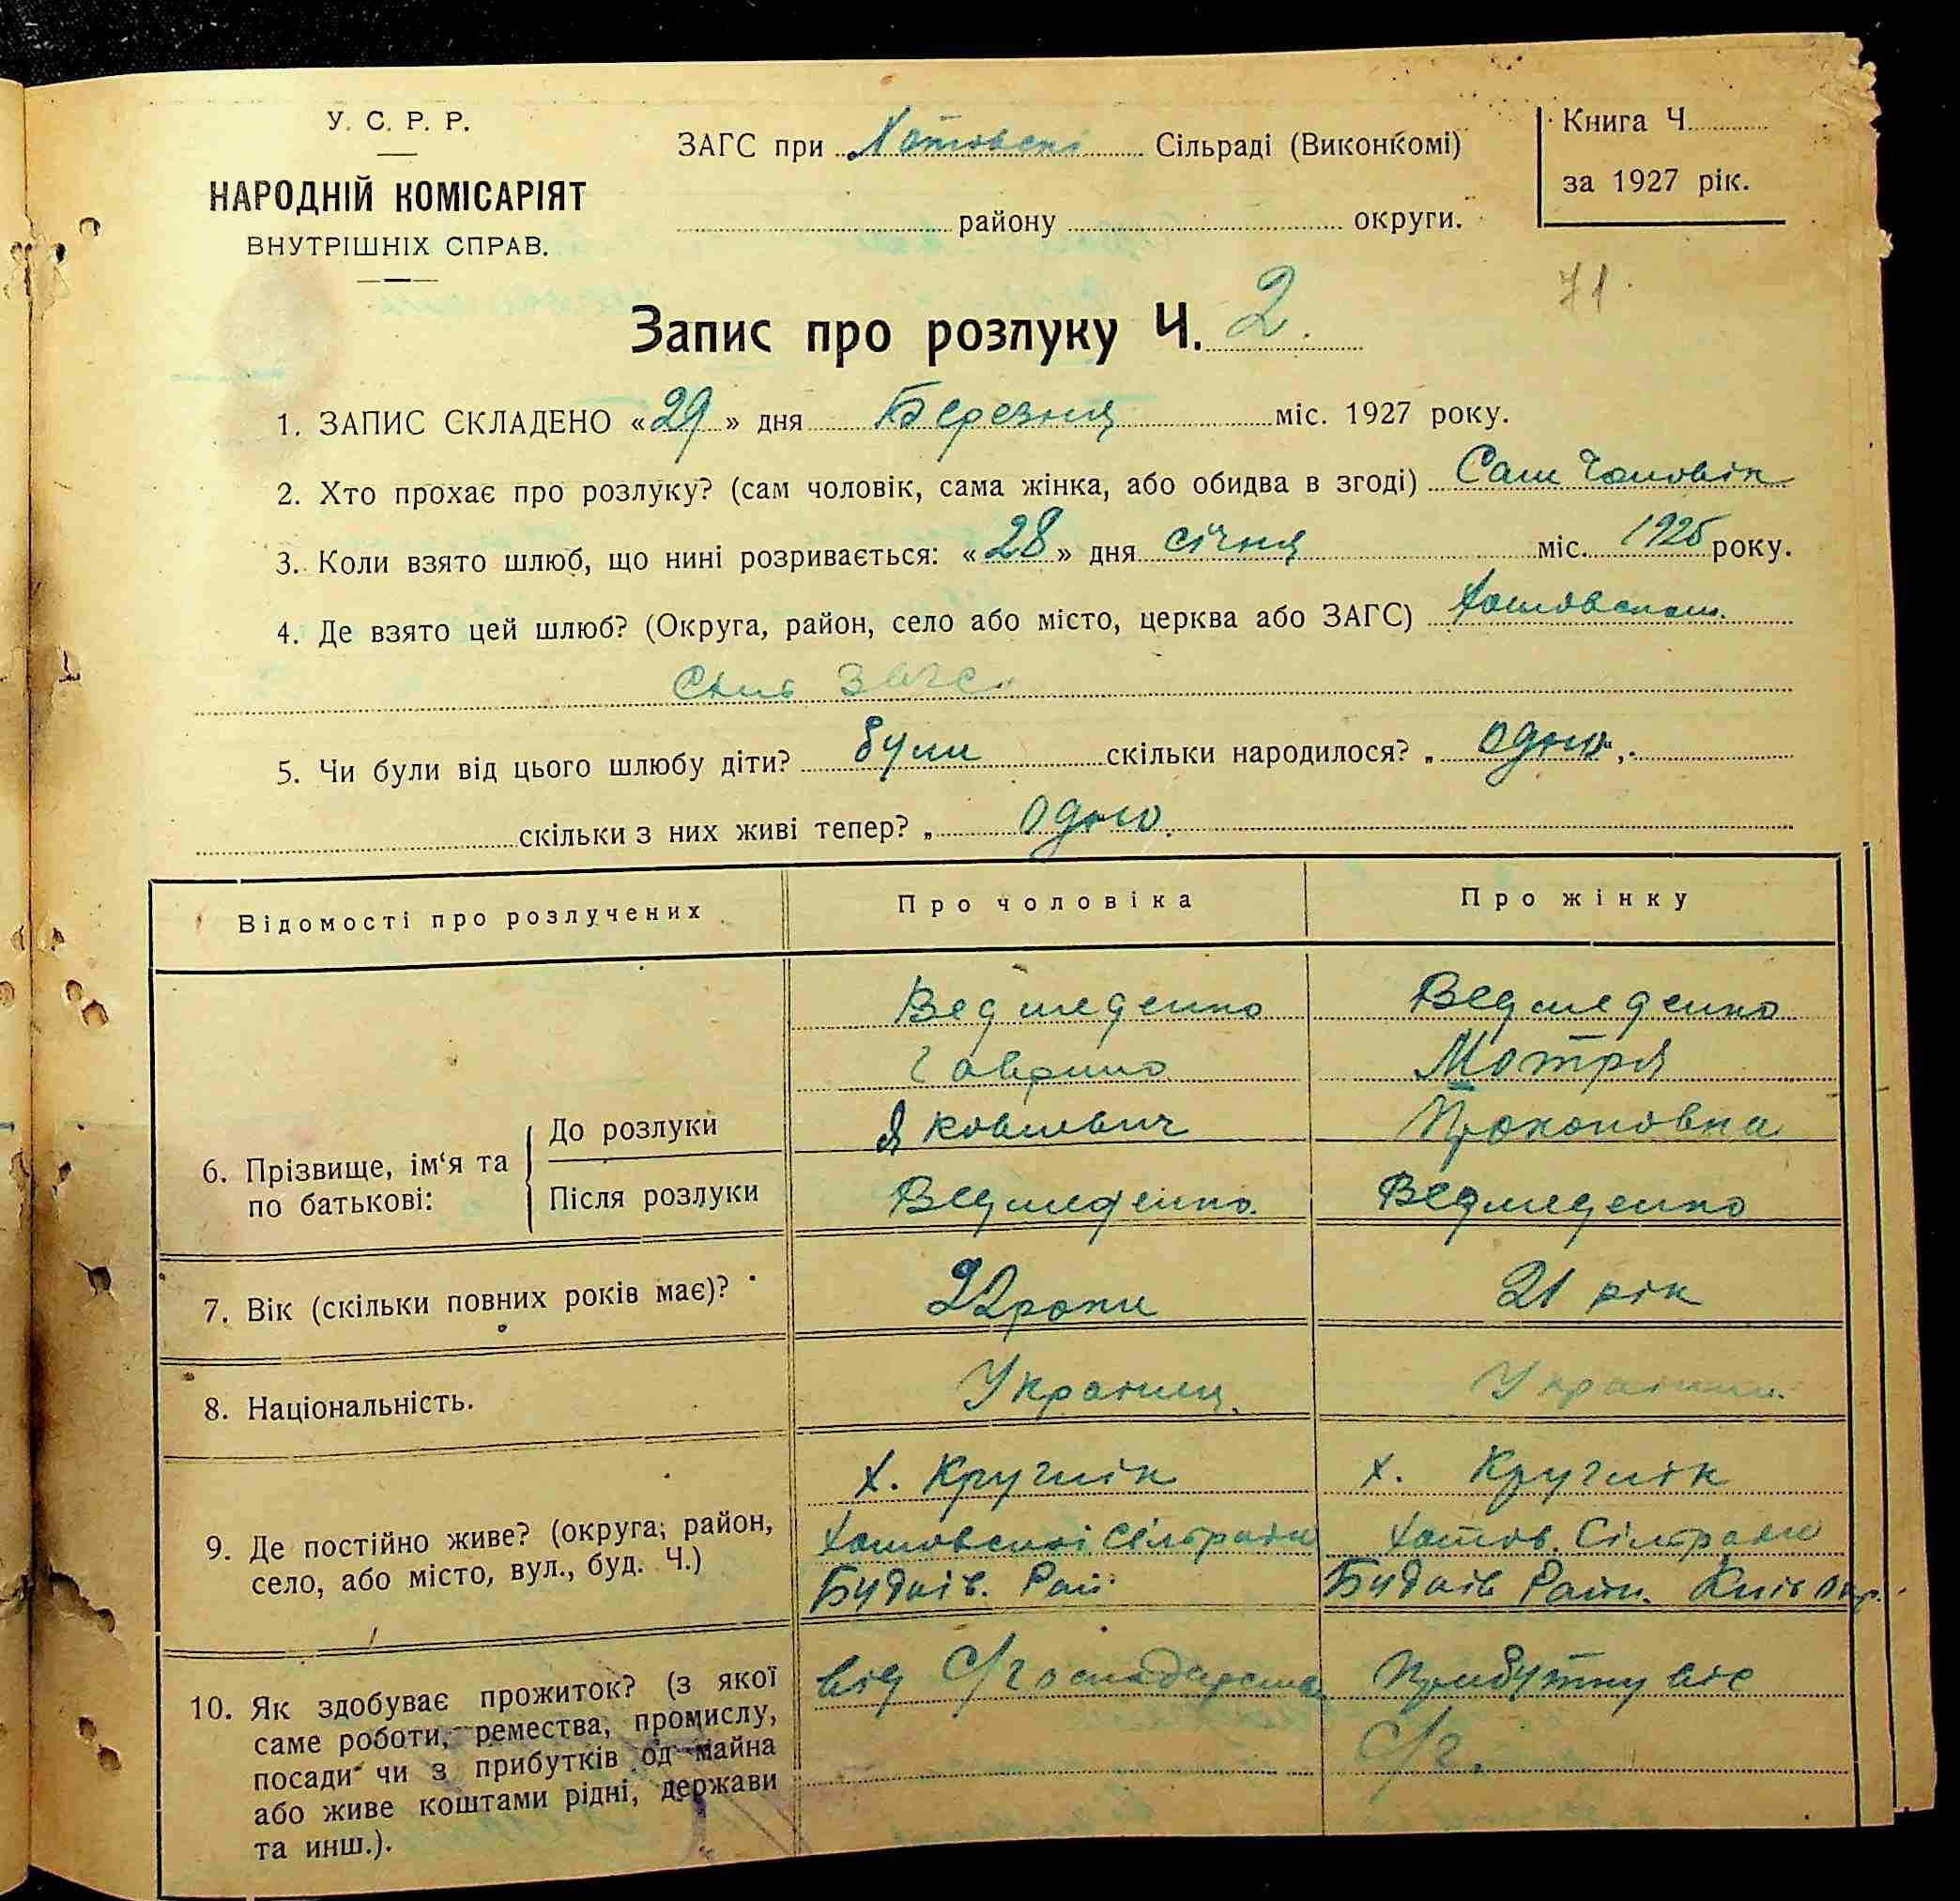 У. С. Р. Р.
НАРОДНІЙ КОМІСАРІЯТ
ВНУТРІШНІХ СПРАВ.
ЗАГС при Хотовскі Сільраді (Виконкомі)
району округи.
Книга Ч.
за 1927 рік.
71.
Запис про розлуку Ч. 2.
1. ЗАПИС СКЛАДЕНО «29» дня Березня міс. 1927 року.
2. Хто прохає про розлуку? (сам чоловік, сама жінка, або обидва в згоді) Сам Чоловік
3. Коли взято шлюб, що нині розривається: «28» дня січня міс. 1925 року.
4. Де взято цей шлюб? (Округа, район, село або місто, церква або ЗАГС)
ЗАГС
5. Чи були від цього шлюбу діти? були скільки народилося? „ одно
скільки з них живі тепер? „ Одно.
Відомості про розлучених
Про чоловіка
Про жінку
6. Прізвище, ім‘я та по батькові:
До розлуки
Після розлуки
Ведмеденко
Гаврило
Яковлевич
Ведмеденко
Ведмеденко
Мотря
Прокоповна
Ведмеденко
7. Вік (скільки повних років має)?
22 роки
21 рік
8. Національність.
Украинц.
9. Де постійно живе? (округа, район,
село, або місто, вул., буд. Ч.)
х. Круглік
Хотовскої Сільради
Будаїв. Рай.
х. Круглік
Хотов. Сільради
Будаїв Райн. Київ Окр.
10. Як здобуває прожиток? (з якої
саме роботи, ремества, промислу,
посади чи з прибутків од майна
або живе коштами рідні, держави
та инш.).
від С/господарства
Прибутку від
С/г.